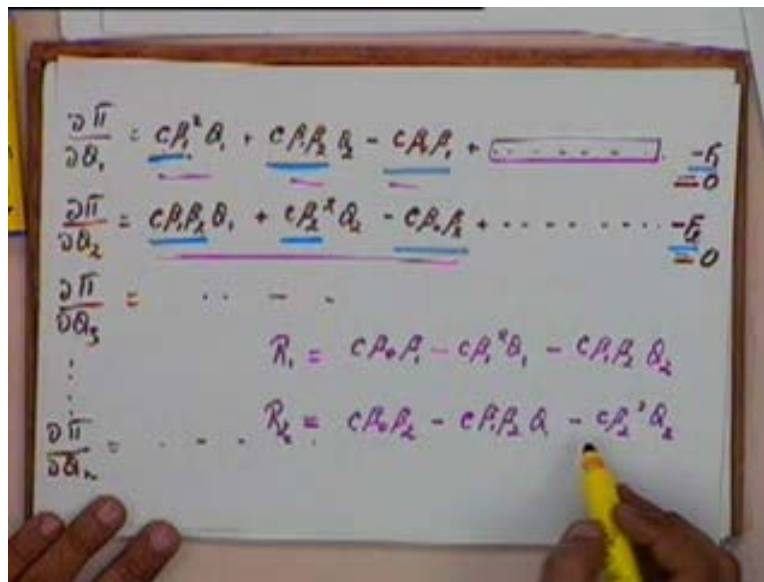 ∂Π/∂Q₁ = cβ₁²Q₁ + cβ₁β₂Q₂ − cβ₀β₁ + [- - - - -] −F₁ = 0
∂Π/∂Q₂ = cβ₁β₂Q₁ + cβ₂²Q₂ − cβ₀β₂ + - - - - - - - −F₂ = 0
∂Π/∂Q₃ = ·· - -
⋮
R₁ = cβ₀β₁ − cβ₁²Q₁ − cβ₁β₂Q₂
R₂ = cβ₀β₂ − cβ₁β₂Q₁ − cβ₂²Q₂
∂Π/∂Qₙ = - - - .